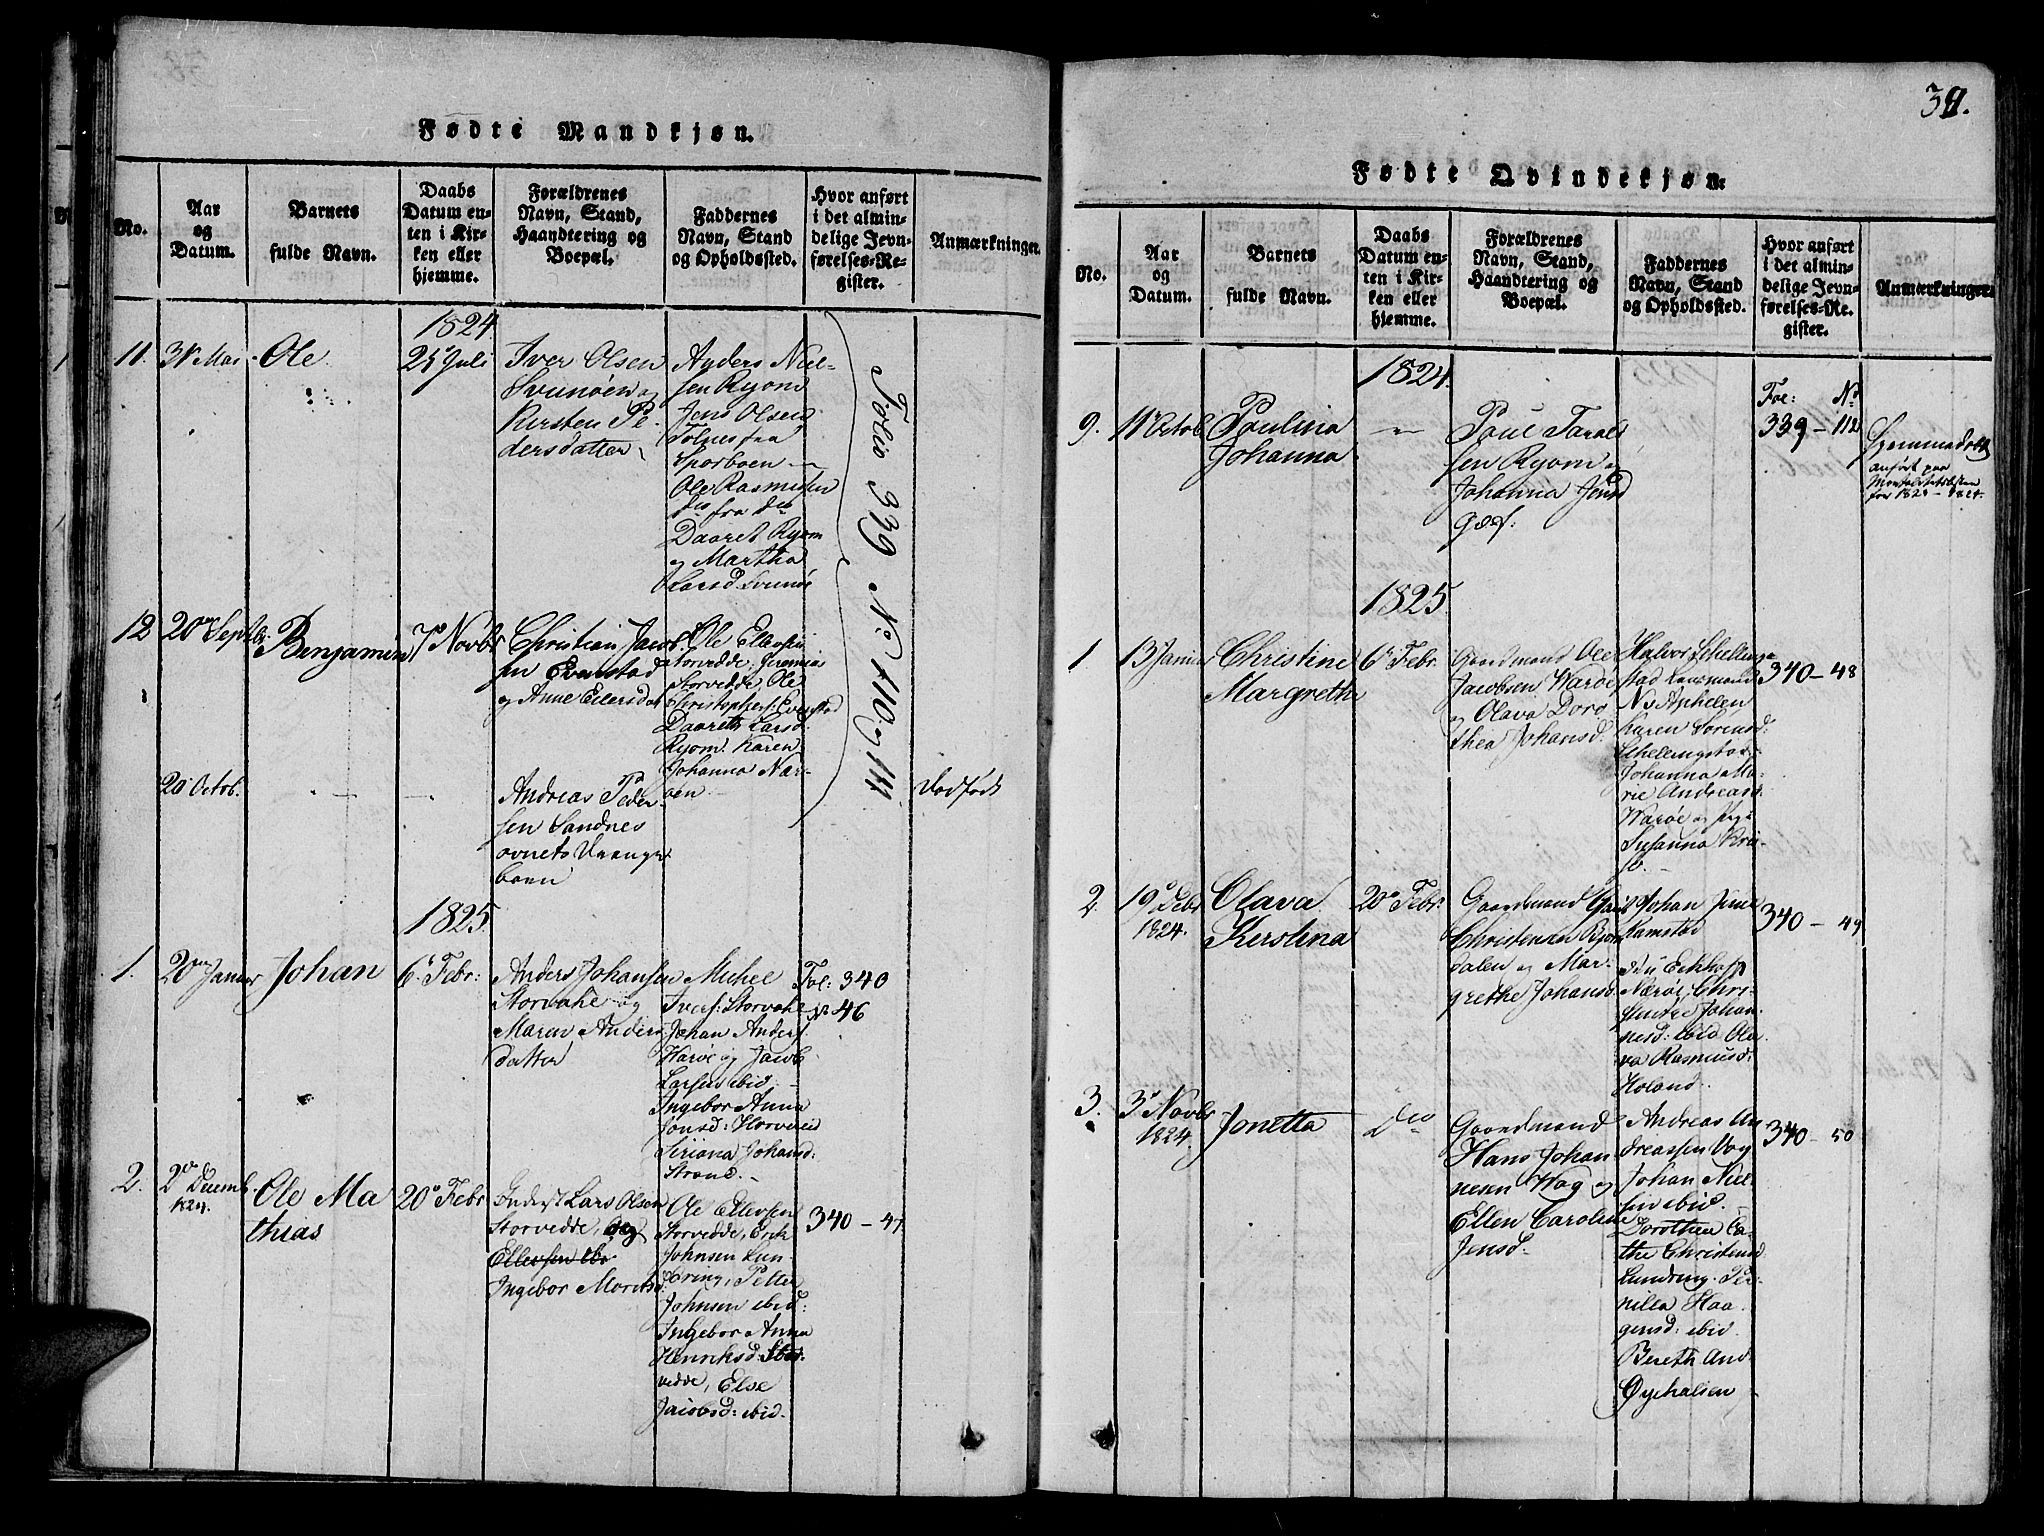 Fødte Mandkjøn.
No.
Aar
og
Datum.
Barnets
fulde Navn.
Daabs
Datum en-
ten i Kir-
ken eller
hjemme.
Forældrenes
Navn, Stand,
Haandtering og
Boepæl.
Faddernes
Navn, Stand
og Opholdssted.
Hvor anført
i det almin-
delige Jevn-
førelses-Re-
gister.
Anmærkninger.
1824
11.
31 Mai
Ole
25 Juli
Iver Olsen
Svinöen og
Kirsten Pe-
dersdatter
Anders Niel-
sen Ryom
Jens Olsen
Tolnes fra
Sporboen
Ole Rasmussen
do fra do
Daaret Ryom
og Martha
Larsd. Svinöe
Folio 339 No 110 og 111
12
20 Septbr.
Benjamin
7 Novbr
Christian Jacob-
sen Evenstad
og Anne Eilersdat
Ole Ellevsen
Storvedde, Jeremias
Storvedde Ole
Christophers: Evenstad
Daareth Larsd.
Ryom. Karen
Johanna Nær-
öen.
20 Octob.
Andreas Peder-
sen Sandnes
Dödfödt
1825.
1.
20 Januar
Johan
6 Febr:
Anders Johansen
Storvahle og
Maren Anders
datter
Michel
Ivers: Storvahle
Johan Anders.
Waröe og Jacob
Larsen ibid.
Ingebor Anna
Jonsd: Horvereid
Siriana Johansd:
Strand.
Fol: 340
No 46
2.
2 Decemb.
1824.
Ole Ma
thias
20 Febr
Inderst Lars Olsen
Storvedde, og
Ellevsen ibid
Ingebor Moritsd.
Ole Ellevsen
Storvedde, Erik
Johnsen Lun-
dring, Petter
Johnsen ibid:
Ingebor Anna
Henriksd: Stor-
vedde, Else
Jacobsd: ibid.
340 - 47
39.
Fødte Qvindekjøn.
No.
Aar
og
Datum.
Barnets
fulde Navn.
Daabs
Datum en-
ten i Kir-
ken eller
hjemme.
Forældrenes
Navn, Stand,
Haandtering og
Boepæl.
Faddernes
Navn, Stand
og Opholdssted.
Hvor anført
i det almin-
delige Jevn-
førelses-Re-
gister.
Anmærkninger.
1824.
Fol: No
9.
11 Octob
Paulina
Johanna
Poul Tarald
sen Ryom og
Johanna Jensd
339 - 112
Hjemmedöbt
anfört paa
for 1824 - 1824.
1825.
1
13 Januar
Christine
Margreth
6 Febr.
Gaardmand Ole
Jacobsen Waröe
og Olava Doro
thea Johansd.
Karen Sörensd:
Johanna Ma-
rie Andreasd.
Waröe og Pige
Susanna
340 - 48
2.
19 Decbr
1824.
Olava
Kirstina
20 Febr:
Gaardmand
Christensen Bjørn
dalen og Mar-
grethe Johansd.
Johan
Ramstad
Nærøe, Chri-
stine Johan-
nesd: ibid Ola-
va Rasmusd:
Holand.
340 - 49
3.
3 Novbr
1824.
Jonetta
Do
Gaardmand
Hans Johan
nesen Wag og
Ellen Caroline
Jensd.
Andreas An
dreassen Vag
Johan Niel
sen ibid.
Dorothea Ca-
the Christensd
Lundring. Per-
nilla Haa-
gensd: ibid
Bereth And.
340 - 50